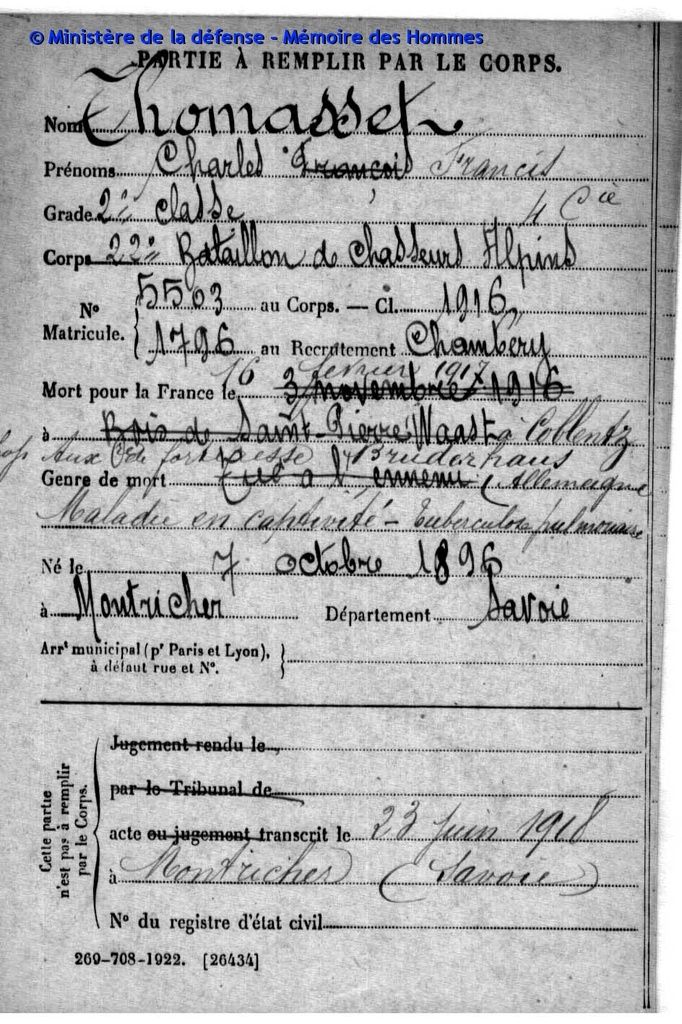 © Ministère de la défense - Mémoire des Hommes
PARTIE À REMPLIR PAR LE CORPS.
Nom Thomasset
Prénoms Charles François Francis
Grade 2e classe 4 Cie
Corps 22e Bataillon de Chasseurs Alpins
N° Matricule. { 5503 au Corps. — Cl. 1916
1796 au Recrutement Chambéry
16 février 1917
Mort pour la France le 3 novembre 1916
à Bois de Saint-Pierre Waast à Coblentz
aux de forteresse Bruderhaus
Genre de mort Tué à l'ennemi (Allemagne
Maladie en captivité - Tuberculose pulmonaire
Né le 7 octobre 1896
à Montricher Département Savoie
Arrt municipal (pr Paris et Lyon), }
à défaut rue et N°.
Cette partie n'est pas à remplir par le Corps.
Jugement rendu le
par le Tribunal de
acte ou jugement transcrit le 23 Juin 1918
à Montricher (Savoie)
N° du registre d'état civil
269-708-1922. [26434]